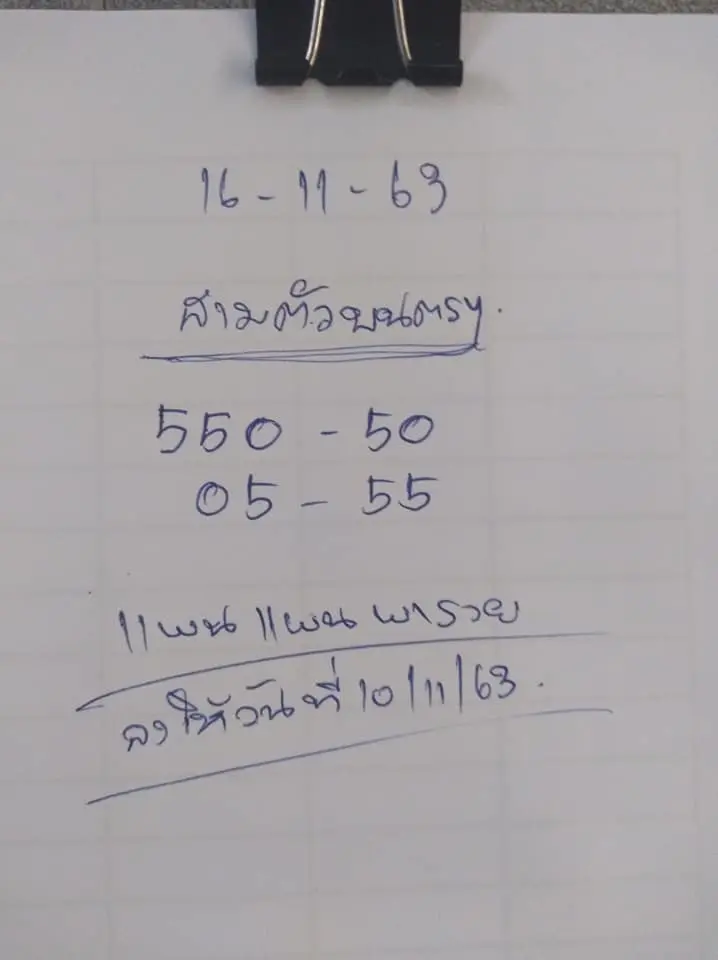 16-11-63
สามตัวบนตรงๆ.
550 - 50
05 - 55
แพน แพน พารวย
ลงให้วันที่ 10/11/63.